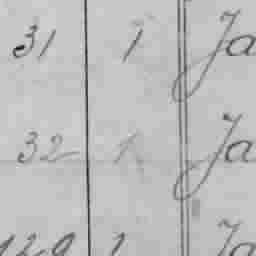 31 1 Ja
32 1 Ja
129 1 Ja